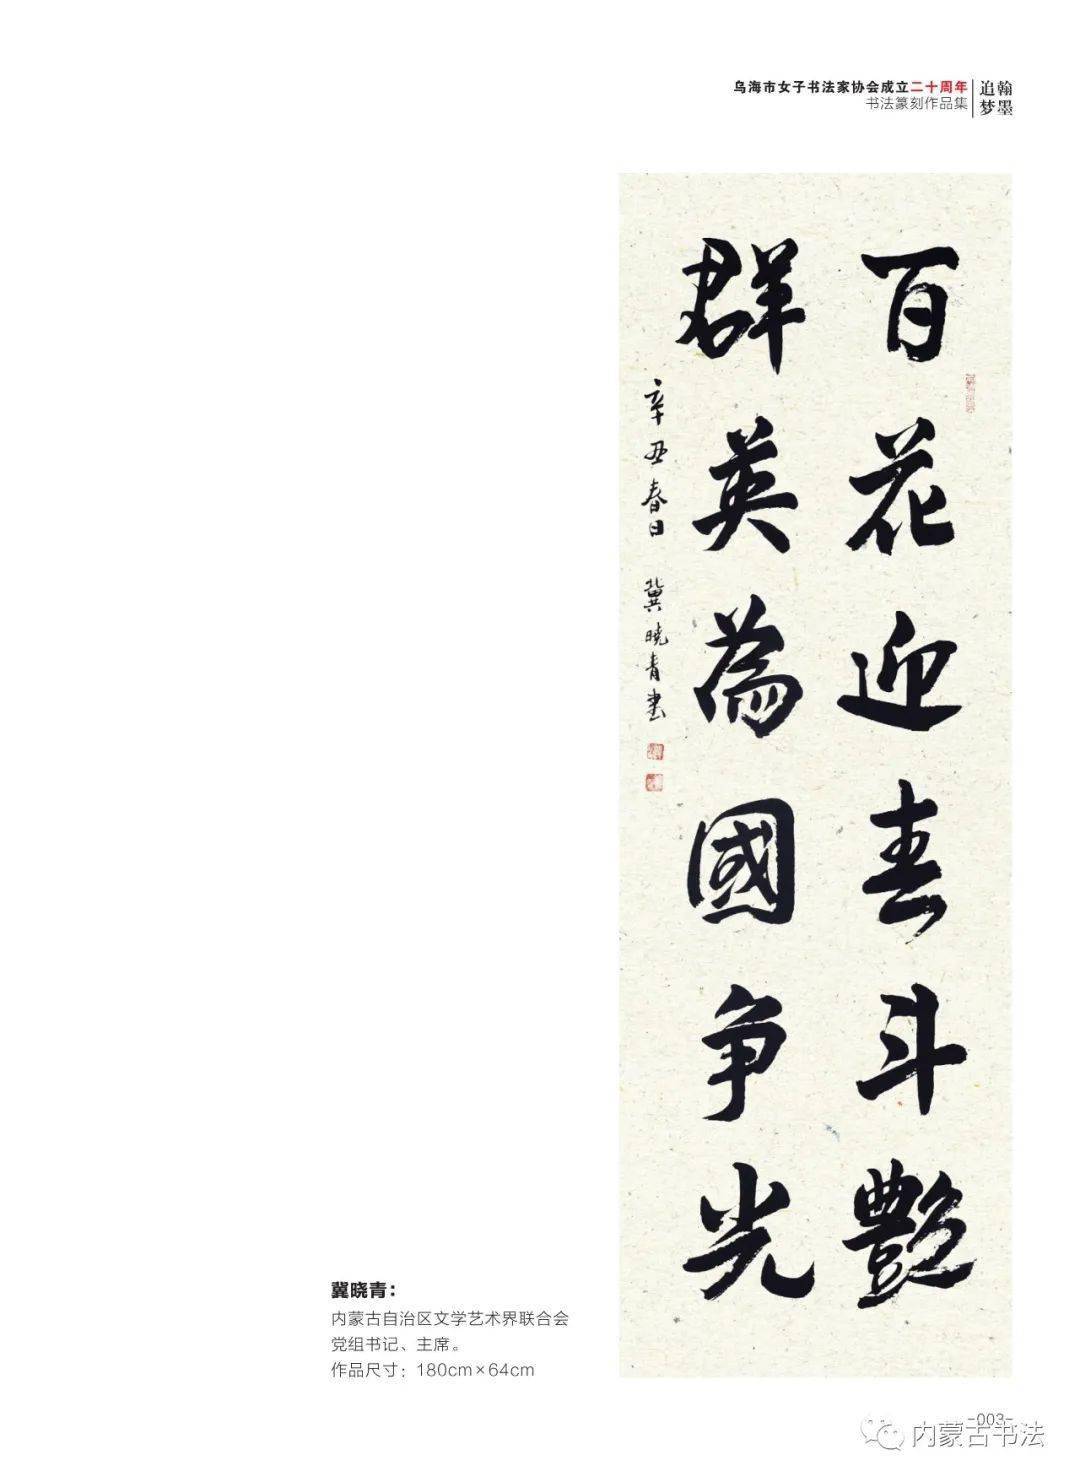 乌海市女子书法家协会成立二十周年
书法篆刻作品集
翰墨
追梦
百花迎春斗艷
群英為國争光
辛丑春日 冀晓青书
冀晓青：
内蒙古自治区文学艺术界联合会
党组书记、主席。
作品尺寸：180cm×64cm
-003-
内蒙古书法